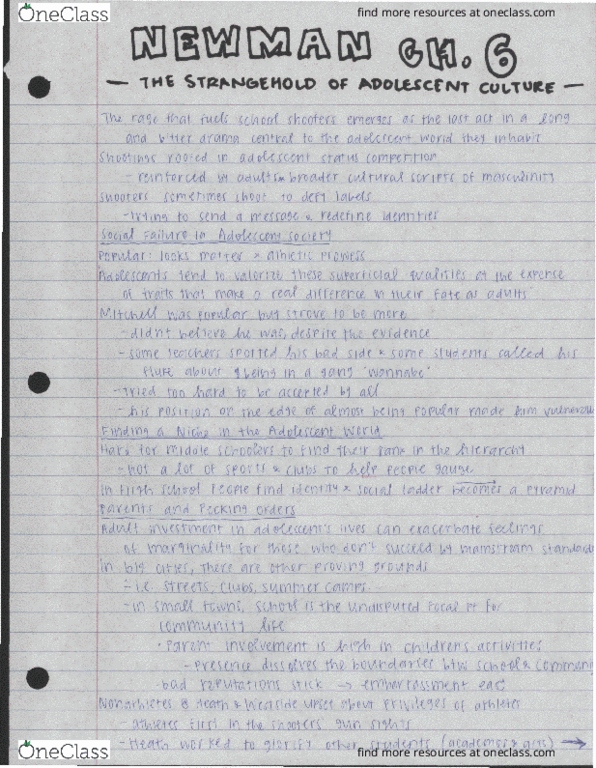 OneClass
find more resources at oneclass.com
NEWMAN CH. 6
— THE STRANGEHOLD OF ADOLESCENT CULTURE —
The rage that fuels school shooters emerges as the last act in a long
and bitter drama central to the adolescent world they inhabit
Shootings rooted in adolescent status competition
- reinforced by adults & broader cultural scripts of masculinity
Shooters sometimes shoot to defy labels
- trying to send a message & redefine identities
Social Failure in Adolescent Society
Popular: looks matter & athletic prowess
Adolescents tend to valorize these superficial qualities at the expense
of traits that make a real difference in their fate as adults
Mitchell was popular but strove to be more
- didn't believe he was, despite the evidence
- some teachers spotted his bad side & some students called his
about being in a gang "wannabe"
- tried too hard to be accepted by all
- his position on the edge of almost being popular made him vulnerable
Finding a Niche in the Adolescent World
Hard for middle schoolers to find their rank in the hierarchy
- not a lot of sports & clubs to help people gauge
In high school people find identity & social ladder becomes a pyramid
Parents and Pecking Orders
Adult investment in adolescent's lives can exacerbate feelings
of marginality for those who don't succeed by mainstream standards
In big cities, there are other proving grounds
- i.e. streets, clubs, summer camps
- in small towns, school is the undisputed focal pt for
community life
• parent involvement is high in children's activities
- presence dissolves the boundaries btw school &
- bad reputations stick → embarrassment
Nonathletes @ Heath & Westside upset about privileges of athletes
- athletes first in the shooters' gun sights
- Heath worked to glorify other students (academics & arts) →
OneClass
find more resources at oneclass.com